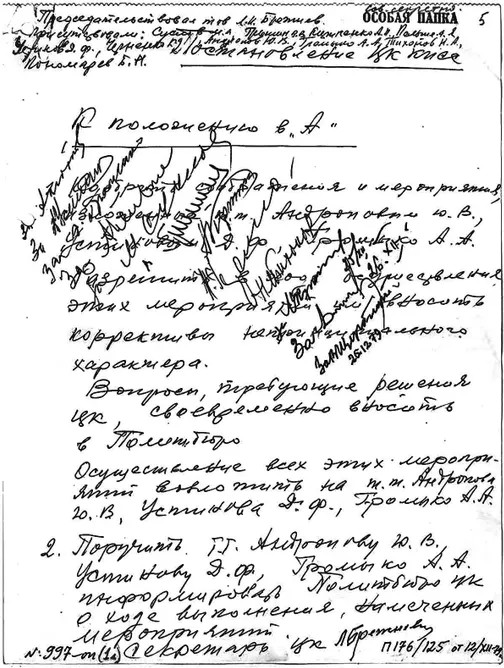 ОСОБАЯ ПАПКА
Председательствовал тов. Л.И. Брежнев.
Присутствовали: Суслов М.А., Гришин В.В., Кириленко А.П., Пельше А.Я.,
Устинов Д.Ф., Черненко К.У., Андропов Ю.В., Громыко А.А., Тихонов Н.А.,
Пономарев Б.Н.
Постановление ЦК КПСС
5
К положению в „А"
1. Одобрить соображения и мероприятия,
изложенные т.т. Андроповым Ю.В.,
Устиновым Д.Ф. Громыко А.А.
Разрешить в ходе осуществления
этих мероприятий им вносить
коррективы непринципиального
характера.
Вопросы, требующие решения
ЦК, своевременно вносить
в Политбюро
Осуществление всех этих меропри-
ятий возложить на т.т. Андропова
Ю.В., Устинова Д.Ф., Громыко А.А.
2. Поручить т.т. Андропову Ю.В.,
Устинову Д.Ф., Громыко А.А.
информировать Политбюро ЦК
о ходе выполнения намеченных
мероприятий
Секретарь ЦК Л. Брежнев
№ 997-оп (1л)
П176/125 от 12/XII
За
25.XII
26.XII
За
За
25.12.79